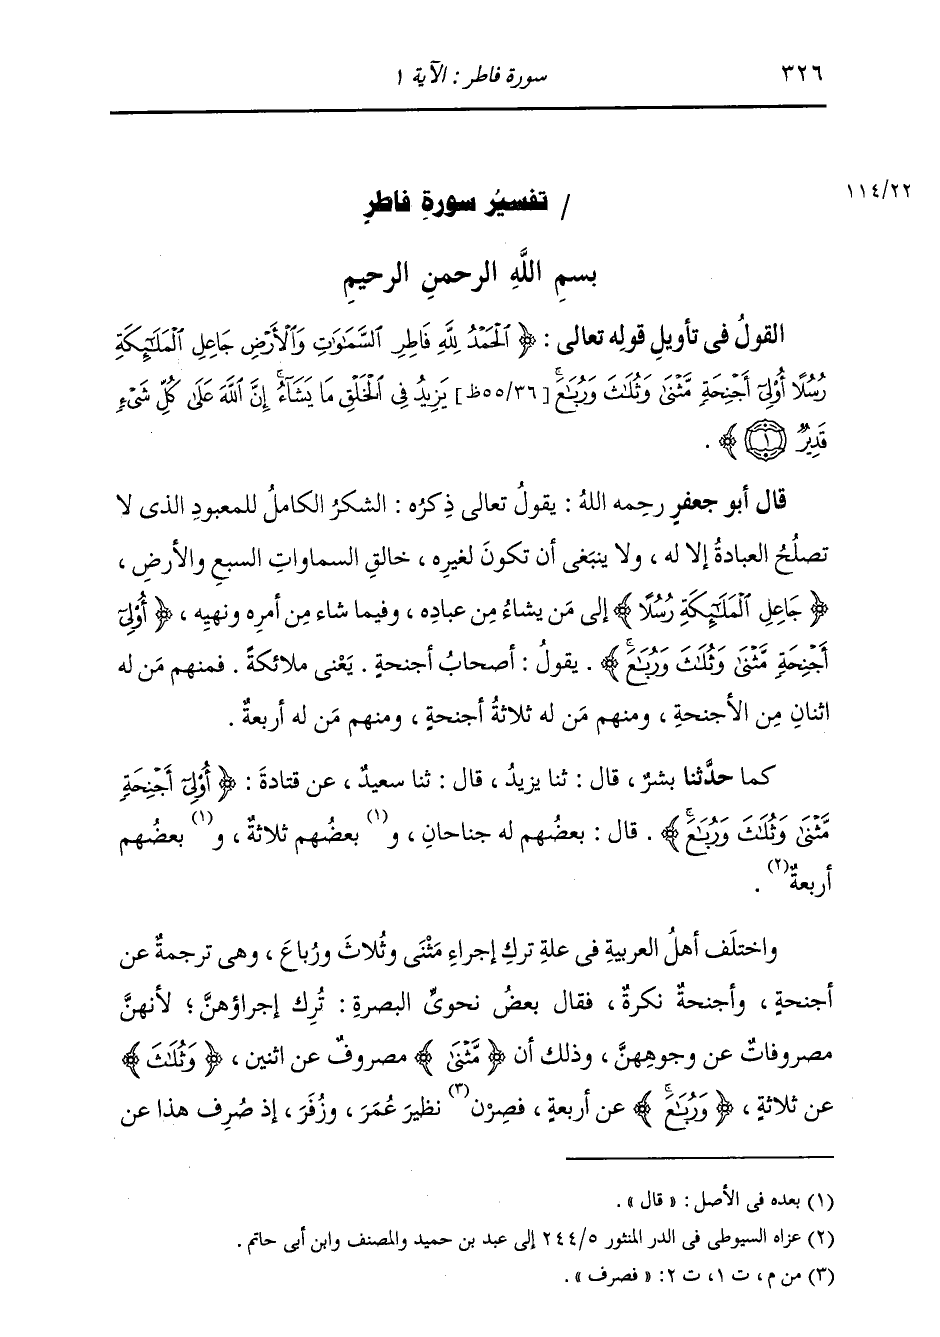 ٣٢٦
سورة فاطر : الآية ١
١١٤/٢٢
/ تفسيُر سورةِ فاطرِ
بسمِ اللَّهِ الرحمنِ الرحيمِ
القولُ فى تأويلِ قولِه تعالى : ﴿ ٱلْحَمْدُ لِلَّهِ فَاطِرِ ٱلسَّمَٰوَٰتِ وَٱلْأَرْضِ جَاعِلِ ٱلْمَلَٰٓئِكَةِ
رُسُلًا أُو۟لِىٓ أَجْنِحَةٍ مَّثْنَىٰ وَثُلَٰثَ وَرُبَٰعَ ۚ [٥٥/٣٦ظ] يَزِيدُ فِى ٱلْخَلْقِ مَا يَشَآءُ ۚ إِنَّ ٱللَّهَ عَلَىٰ كُلِّ شَىْءٍ
قَدِيرٌ ﴿١﴾ ﴾ .
قال أبو جعفرٍ رحِمه اللهُ : يقولُ تعالى ذِكرُه : الشكرُ الكاملُ للمعبودِ الذى لا
تصلُحُ العبادةُ إلا له ، ولا ينبَغى أن تكونَ لغيرِه ، خالقِ السماواتِ السبعِ والأرضِ ،
﴿ جَاعِلِ ٱلْمَلَٰٓئِكَةِ رُسُلًا ﴾ إلى مَن يشاءُ مِن عبادِه ، وفيما شاء مِن أمرِه ونهيِه ، ﴿ أُو۟لِىٓ
أَجْنِحَةٍ مَّثْنَىٰ وَثُلَٰثَ وَرُبَٰعَ ۚ ﴾ . يقولُ : أصحابُ أجنحةٍ . يَعْنى ملائكةً . فمنهم مَن له
اثنانِ مِن الأجنحةِ ، ومنهم مَن له ثلاثةُ أجنحةٍ ، ومنهم مَن له أربعةٌ .
كما حدَّثنا بشرٌ ، قال : ثنا يزيدُ ، قال : ثنا سعيدٌ ، عن قتادةَ : ﴿ أُو۟لِىٓ أَجْنِحَةٍ
مَّثْنَىٰ وَثُلَٰثَ وَرُبَٰعَ ۚ ﴾ . قال : بعضُهم له جناحانِ ، و(١) بعضُهم ثلاثةٌ ، و(١) بعضُهم
أربعةٌ(٢) .
واختلَف أهلُ العربيةِ فى علةِ تركِ إجراءِ مَثْنَى وثُلاثَ ورُباعَ ، وهى ترجمةٌ عن
أجنحةٍ ، وأجنحةٌ نكرةٌ ، فقال بعضُ نحويِّ البصرةِ : تُرِك إجراؤهنَّ ؛ لأنهنَّ
مصروفاتٌ عن وجوهِهنَّ ، وذلك أن ﴿ مَّثْنَىٰ ﴾ مصروفٌ عن اثنين ، ﴿ وَثُلَٰثَ ﴾
عن ثلاثةٍ ، ﴿ وَرُبَٰعَ ۚ ﴾ عن أربعةٍ ، فصِرْن(٣) نظيرَ عُمَرَ ، وزُفَرَ ، إذ صُرِف هذا عن
(١) بعده فى الأصل : « قال » .
(٢) عزاه السيوطى فى الدر المنثور ٢٤٤/٥ إلى عبد بن حميد والمصنف وابن أبى حاتم .
(٣) من م ، ت ١ ، ت ٢ : « فصرف » .